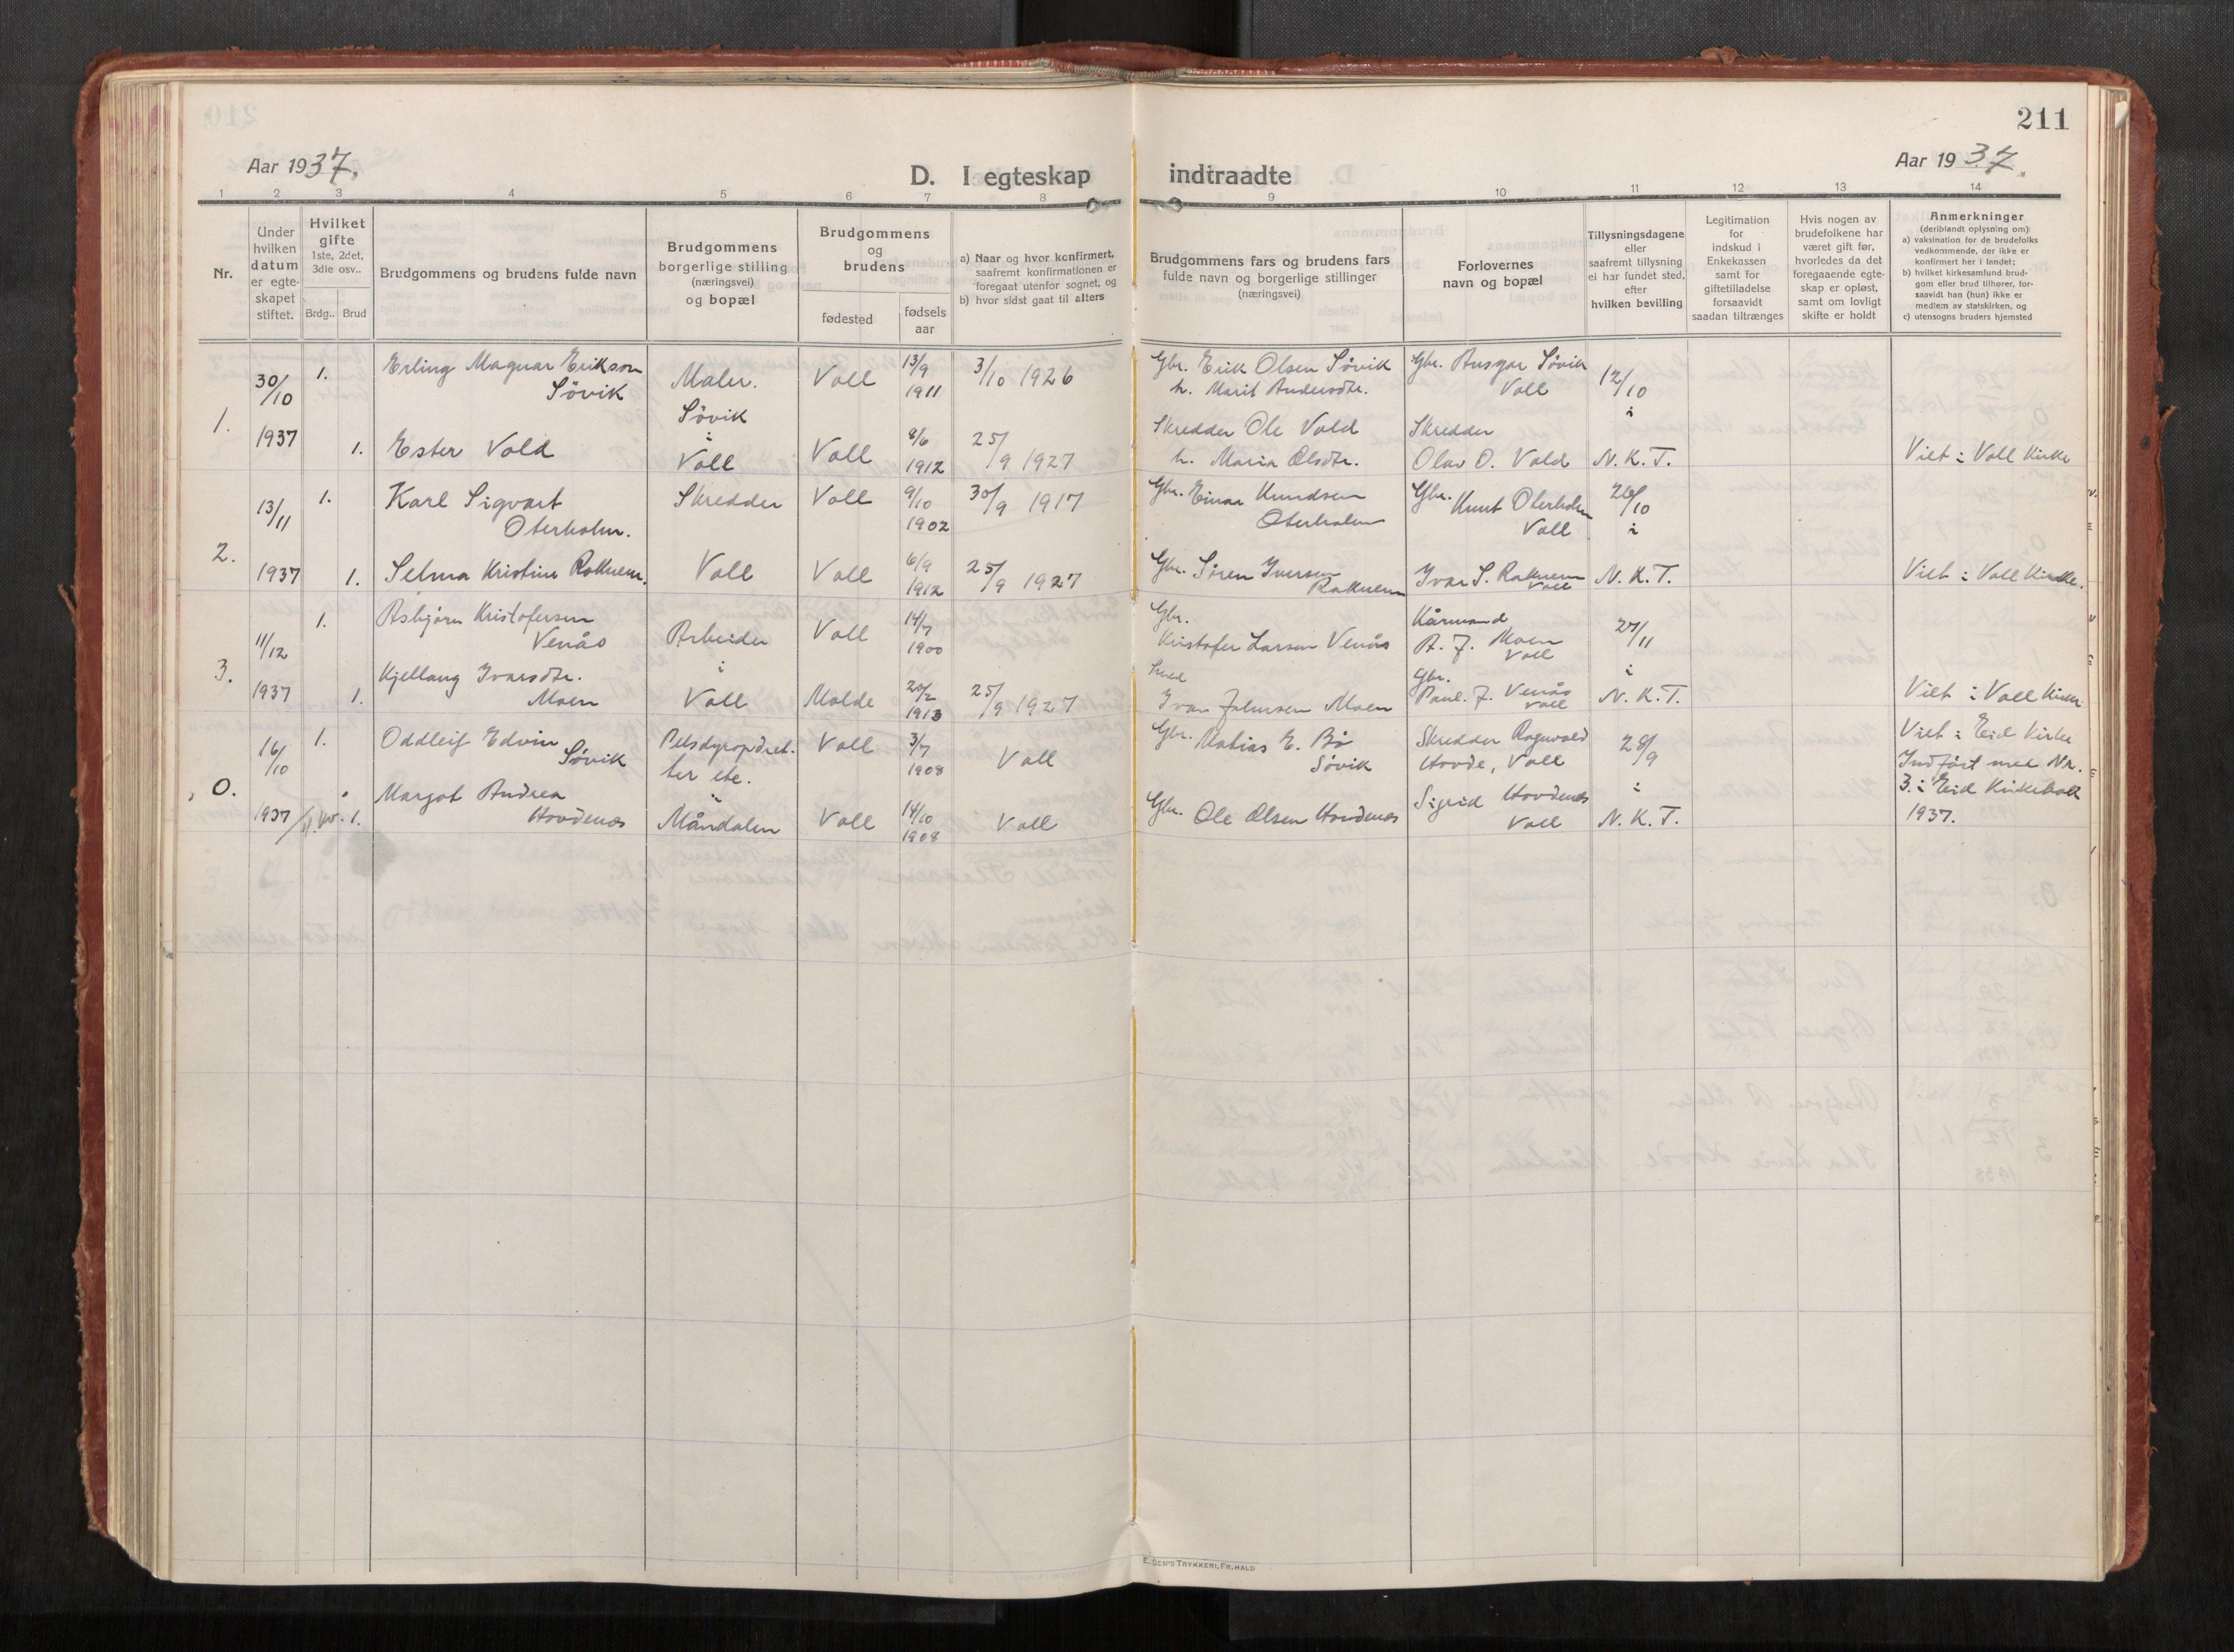 211
Aar 1937.
D. I egteskap indtraadte
Aar 1937.
1 2 3 4 5 6 7 8 9 10 11 12 13 14
Nr.
Under
hvilken
datum
er egte-
skapet
stiftet.
Hvilket
gifte
1ste, 2det,
3die osv..
Brdg.. Brud
Brudgommens og brudens fulde navn
Brudgommens
borgerlige stilling
(næringsvei)
og bopæl
Brudgommens
og
brudens
fødested
fødsels
aar
a) Naar og hvor konfirmert,
saafremt konfirmationen er
foregaat utenfor sognet, og
b) hvor sidst gaat til alters
Brudgommens fars og brudens fars
fulde navn og borgerlige stillinger
(næringsvei)
Forlovernes
navn og bopæl
Tillysningsdagene
eller
saafremt tillysning
ei har fundet sted,
efter
hvilken bevilling
Legitimation
for
indskud i
Enkekassen
samt for
giftetilladelse
forsaavidt
saadan tiltrænges
Hvis nogen av
brudefolkene har
været gift før,
hvorledes da det
foregaaende egte-
skap er opløst,
samt om lovligt
skifte er holdt
Anmerkninger
(deriblandt oplysning om):
a) vaksination for de brudefolks
vedkommende, der ikke er
konfirmert her i landet;
b) hvilket kirkesamfund brud-
gom eller brud tilhører, for-
saavidt han (hun) ikke er
medlem av statskirken, og
c) utensogns bruders hjemsted
1.
30/10
1937
1.
Erling Magnar Erikson
Søvik
Maler.
Søvik
i
Voll
Voll
13/9
1911
3/10 1926
Gbr. Erik Olsen Søvik
h. Marit Andersdtr.
Gbr. Ansgar Søvik
Voll
12/10
i
N. K. T.
1.
Ester Vold
Voll
8/6
1912
25/9 1927
Skredder Ole Vold
h. Maria Olsdtr.
Skredder
Olav O. Vold
Viet i Voll Kirke
2.
13/11
1937
1.
Karl Sigvart
Oterholm.
Skredder
Voll
Voll
9/10
1902
30/9 1917
Gbr. Einar Knudsen
Oterholm
Gbr. Knut Oterholm
Voll
26/10
i
N. K. T.
1.
Selma Kristine Roknem.
Voll
6/9
1912
25/9 1927
Gbr. Søren Iversen
Roknem
Ivar S. Roknem
Voll
Viet i Voll Kirke.
3.
11/12
1937
1.
Asbjørn Kristofersen
Venås
Arbeider
i
Voll
Voll
14/7
1900
Gbr.
Kristofer Larsen Venås
Kårmand
A. J. Moen
Voll
27/11
i
N. K. T.
1.
Kjellaug Ivarsdtr.
Moen
Molde
20/2
1913
25/9 1927
Ivar Johnsen Moen
Gbr.
Paul. J. Venås
Voll
Viet i Voll Kirke
0.
16/10
1937
1.
Oddleif Edvin
Søvik
Pelsdyropdret-
ter etc.
i
Måndalen
Voll
3/7
1908
Voll
Gbr. Matias E. Bø
Søvik
Skredder Ragnvald
Hovde, Voll
28/9
i
N. K. T.
1.
Margot Andrea
Hovdenæs
Voll
14/10
1908
Voll
Gbr. Ole Olsen Hovdenæs
Sigrid Hovdenæs
Voll
Viet i Eid Kirke
Indført med Nr.
3 i Eid Kirkebok
1937.
E. SEM'S TRYKKERI, FR.HALD